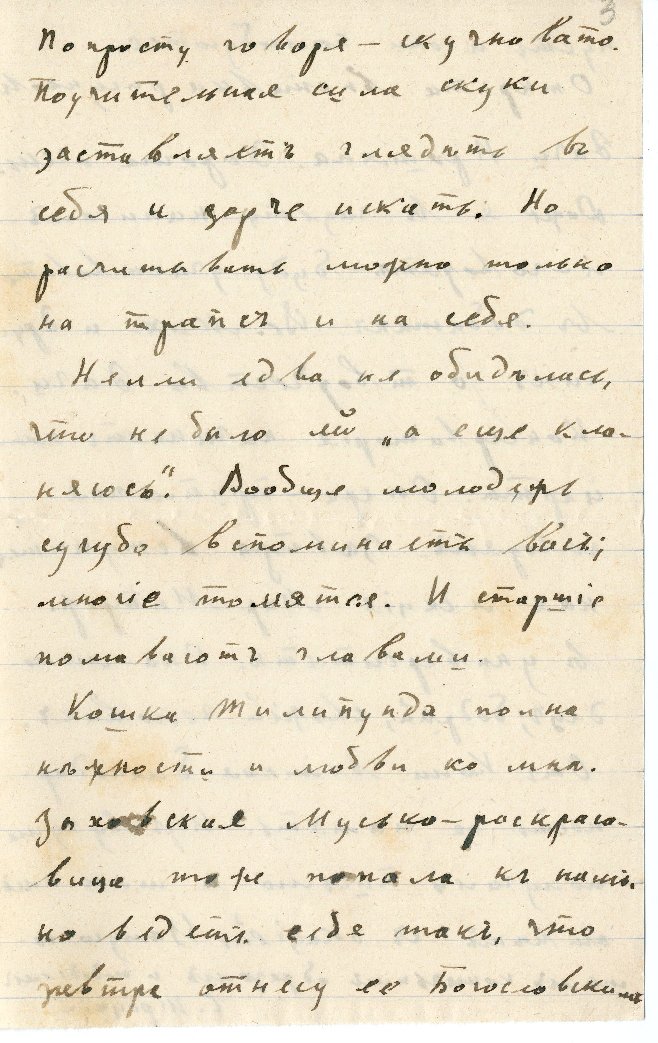 3
Попросту говоря — скучновато.
Поучительная сила скуки
заставляетъ глядѣть въ
себя и зорче искать. Но
расчитывать можно только
на трапезъ и на себя.
Нелли едва не обидѣлась,
что не было ей „а еще кла-
няюсь“. Вообще молодежь
сугубо вспоминаетъ васъ;
многіе томятся. И старшіе
помаваютъ главами.
Кошка Тилипунда полна
нѣжности и любви ко мнѣ.
Муська-раскраса-
вица тоже попала къ намъ,
но ведетъ себя такъ, что
завтра отнесу ее Богословскимъ